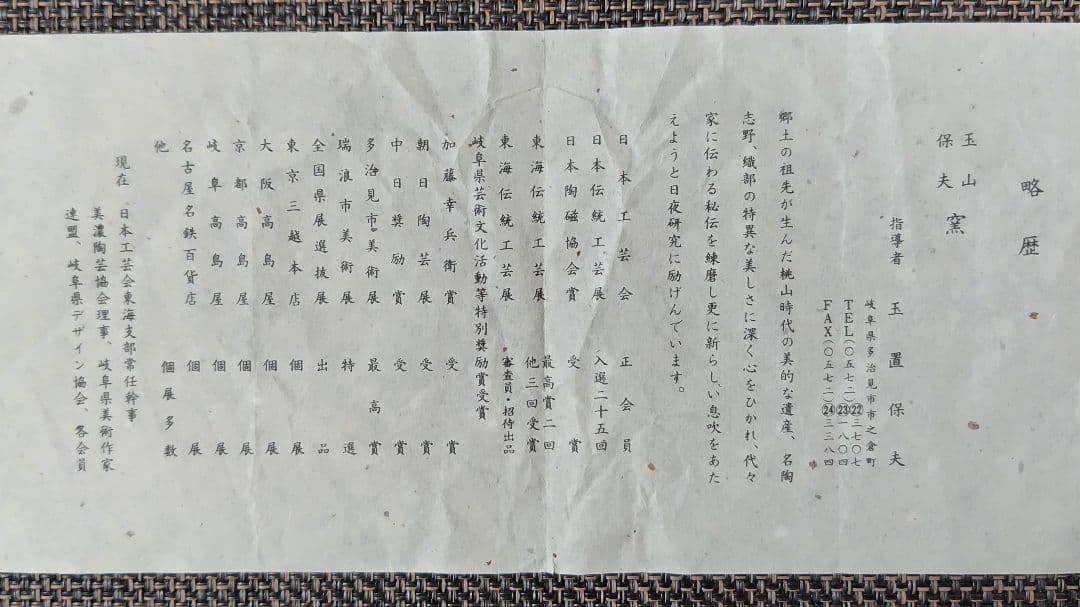 略歴
玉山窯
保夫
指導者 玉置保夫
岐阜県多治見市市之倉町
TEL(〇五七二)㉒三七〇七
㉓一八〇四
FAX(〇五七二)㉔三三八四
郷土の祖先が生んだ桃山時代の美的な遺産、名陶
志野、織部の特異な美しさに深く心をひかれ、代々
家に伝わる秘伝を練磨し更に新らしい息吹をあた
えようと日夜研究に励げんでいます。
日本工芸会 正会員
日本伝統工芸展 入選二十五回
日本陶磁協会賞 受賞
東海伝統工芸展 最高賞二回
他三回受賞
東海伝統工芸展 審査員・招待出品
岐阜県芸術文化活動等特別奨励賞受賞
加藤幸兵衛賞 受賞
朝日陶芸展 受賞
中日奨励賞 受賞
多治見市美術展 最高賞
瑞浪市美術展 特選
全国県展選抜展 出品
東京三越本店 個展
大阪高島屋 個展
京都高島屋 個展
岐阜高島屋 個展
名古屋名鉄百貨店 個展
他 個展多数
現在 日本工芸会東海支部常任幹事
美濃陶芸協会理事、岐阜県美術作家
連盟、岐阜県デザイン協会、各会員